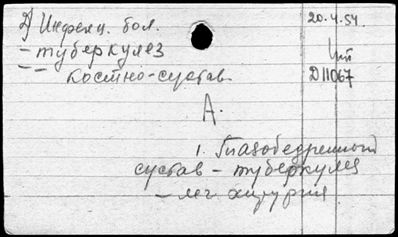 2) Инфекц. бол.
20.4.54.
– туберкулез
– костно-сустав.
чт
D11067
А.
1. Тазобедренный
сустав – туберкулез
– лег хирургия